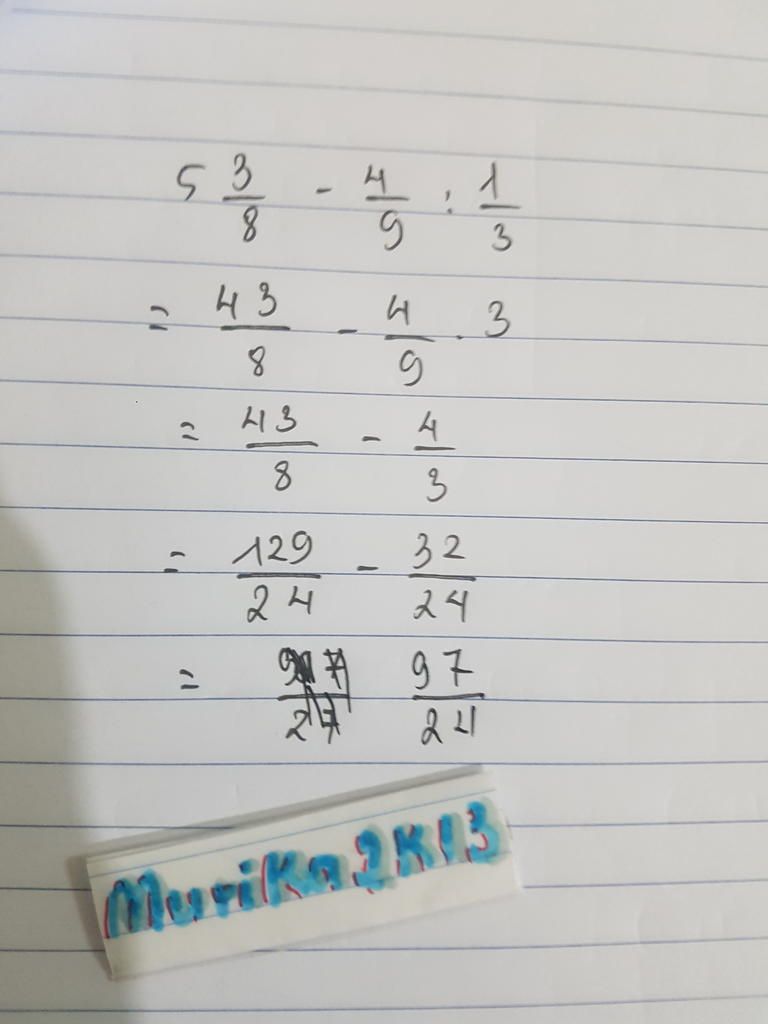 5 3/8 - 4/9 : 1/3
= 43/8 - 4/9 . 3
= 43/8 - 4/3
= 129/24 - 32/24
= 97/24
MuriKa2K13